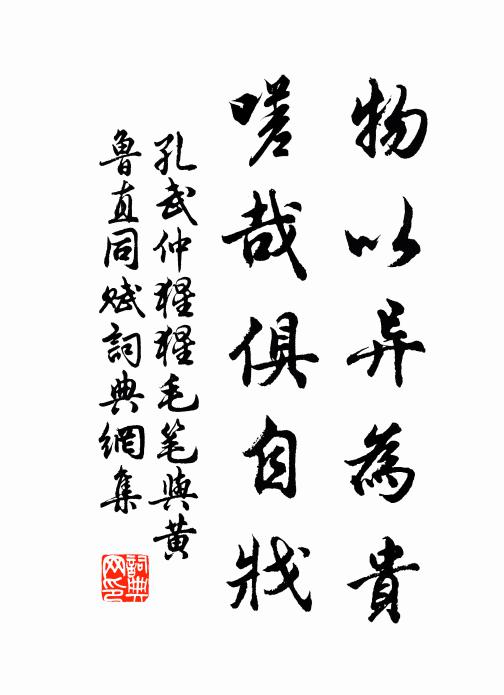 物以异為貴
嗟哉俱自戕
孔武仲猩猩毛笔與黄
鲁直同赋詞典網集
詞典
网印